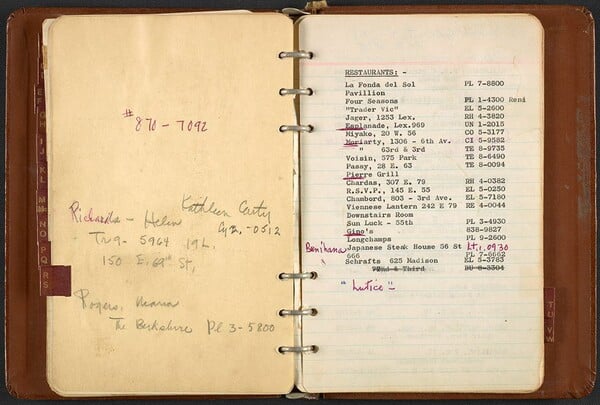 # 870-7092
Kathleen Carty
Richards - Helen
Tr 9- 5964 19 L.
150 E. 69th St,
Rogers, Maria
The Berkshire Pl 3-5800
RESTAURANTS: -
La Fonda del Sol PL 7-8800
Pavillion
Four Seasons PL 1-4300 Reni
"Trader Vic" EL 5-2600
Jager, 1253 Lex. RH 4-3820
Esplanade, Lex.969 UN 1-2015
Miyako, 20 W. 56 CO 5-3177
Moriarty, 1306 - 6th Av. CI 6-9582
" 63rd & 3rd TE 8-9735
Voisin, 575 Park TE 8-6490
Pasay, 28 E. 63 TE 8-0094
Pierre Grill
Chardas, 307 E. 79 RH 4-0382
R.S.V.P., 145 E. 55 EL 5-0250
Chambord, 803 - 3rd Ave. EL 5-7180
Viennese Lantern 242 E 79 RE 4-0044
Downstairs Room
Sun Luck - 55th PL 3-4930
Gino's 838-9827
Longchamps PL 9-2600
Benihana Japanese Steak House 56 St Lt.1.0930
666 PL 7-6662
Schrafts 625 Madison EL 5-3783
72nd & Third BU 8-3304
"Lutice"
E
F
G
H
I
J
K
L
M
N
O
PQ
RS
T
U
VW